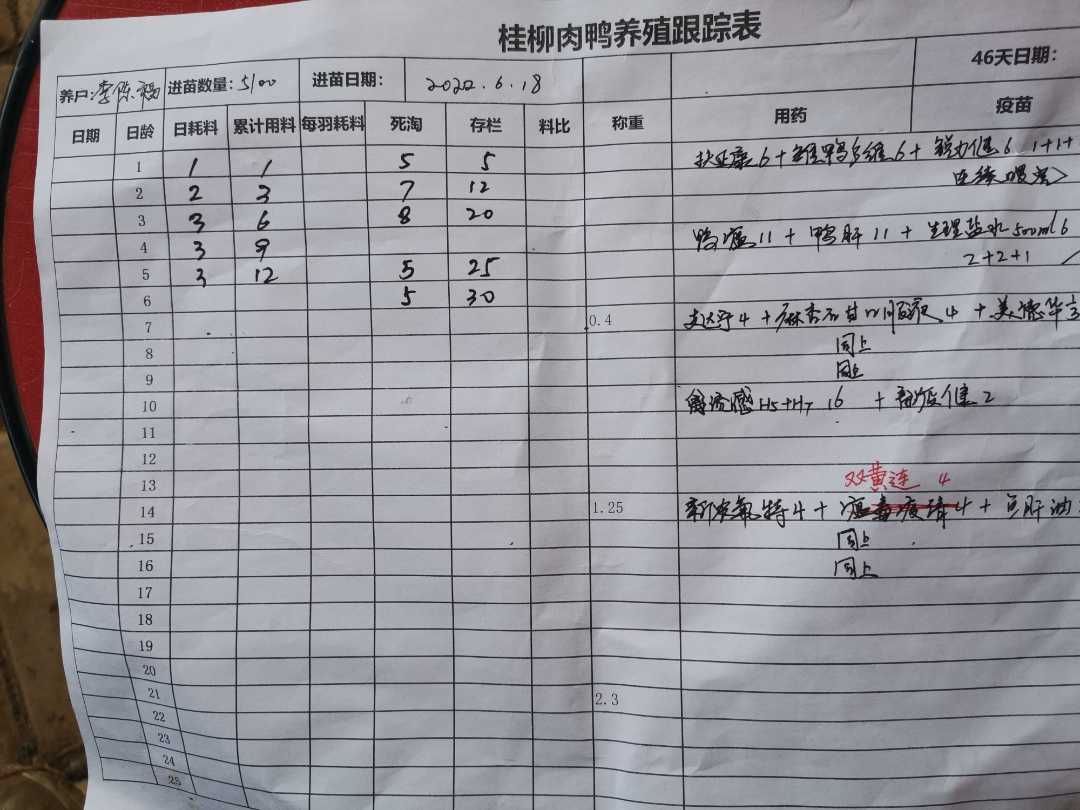 桂柳肉鸭养殖跟踪表
养户: 李陈福 进苗数量: 5100 进苗日期: 2022.6.18 46天日期:
日期 日龄 日耗料 累计用料 每羽耗料 死淘 存栏 料比 称重 用药 疫苗
1 1 1 5 5 扶正康6+ 鸭多维6+ 6 1+1+
连续喂
2 2 3 7 12
3 3 6 8 20
4 3 9 鸭瘟11+鸭肝11+生理盐水500ml 6
5 3 12 5 25 2+2+1
6 5 30
7 0.4 4+麻杏石甘 4+美德华
8 同上
9 同上
10 禽流感H5+H7 16 + 健2
11
12
13 双黄连 4
14 1.25 氟特4+ 4+ 肝油
15 同上
16 同上
17
18
19
20
21 2.3
22
23
24
25